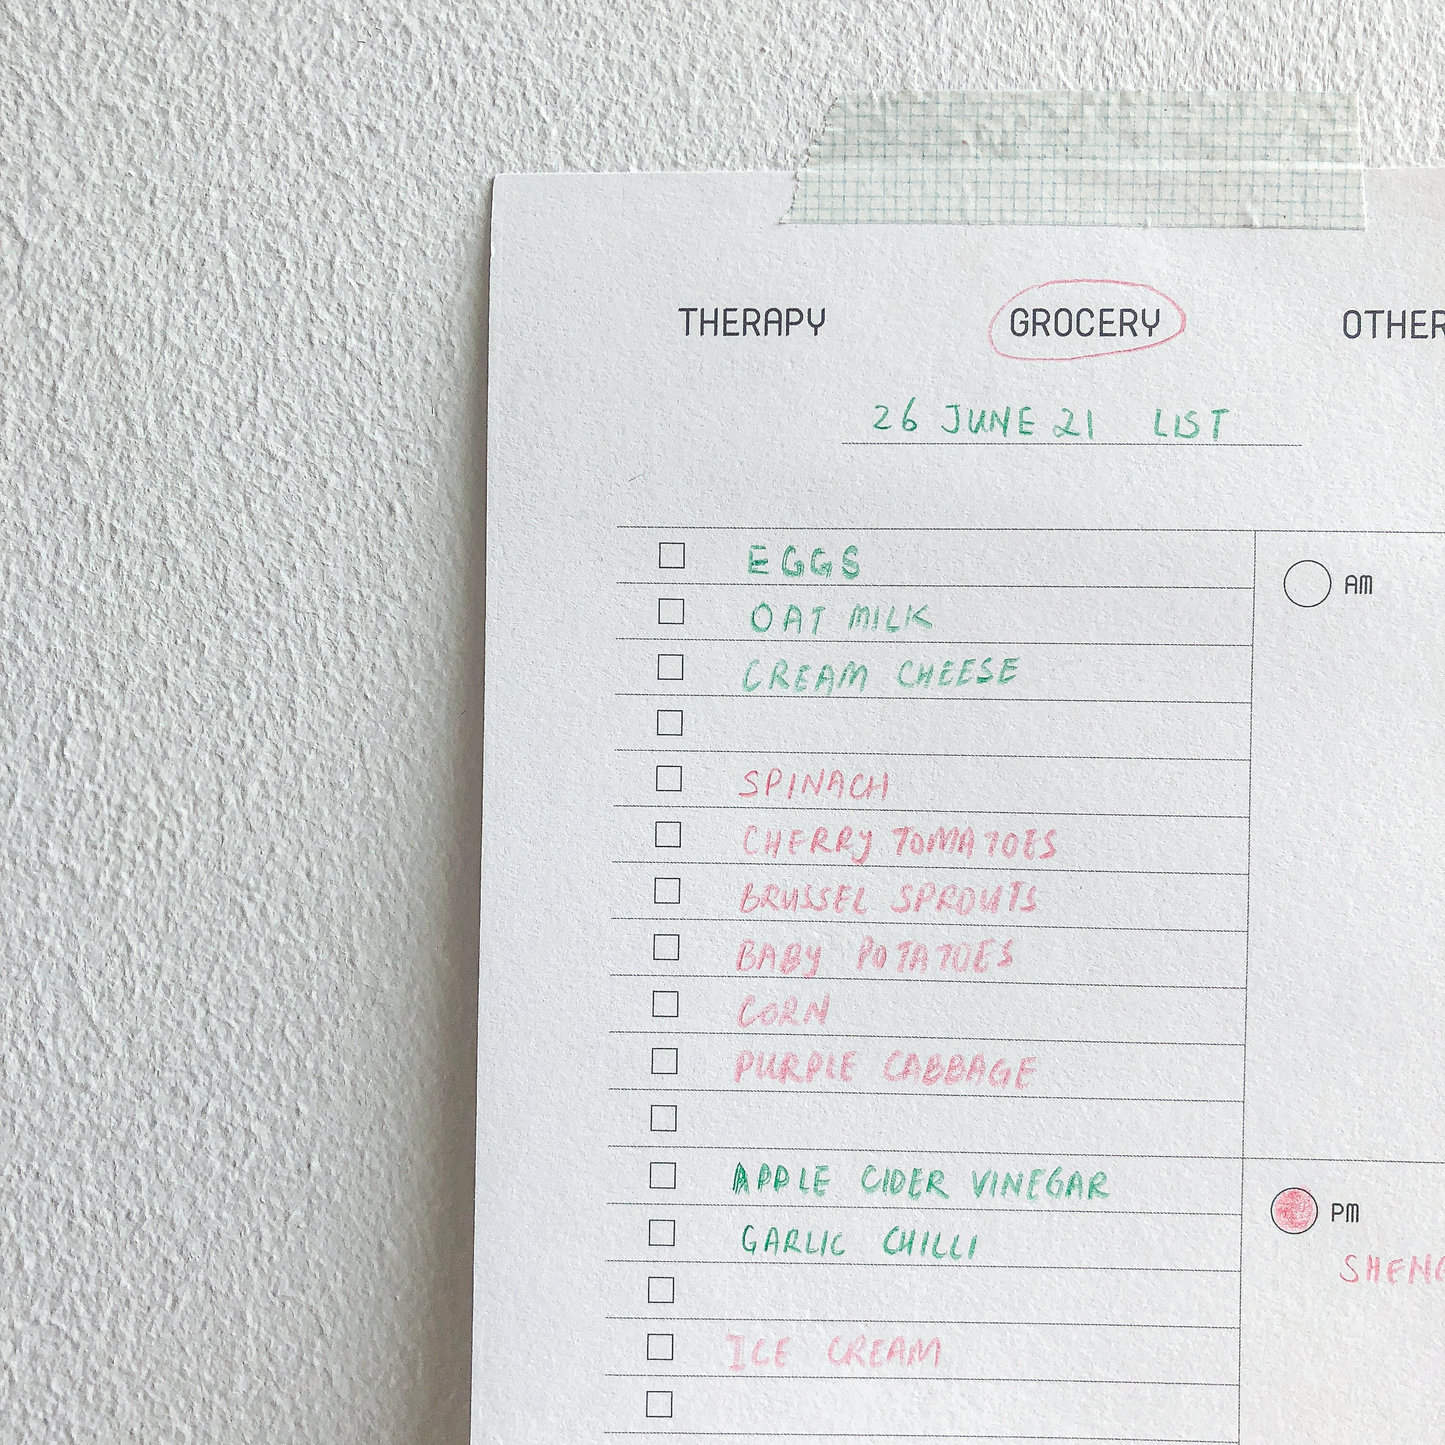 THERAPY GROCERY OTHER
26 JUNE 21 LIST
EGGS
AM
OAT MILK
CREAM CHEESE
SPINACH
CHERRY TOMATOES
BRUSSEL SPROUTS
BABY POTATOES
CORN
PURPLE CABBAGE
APPLE CIDER VINEGAR
PM
GARLIC CHILLI
SHENG
ICE CREAM